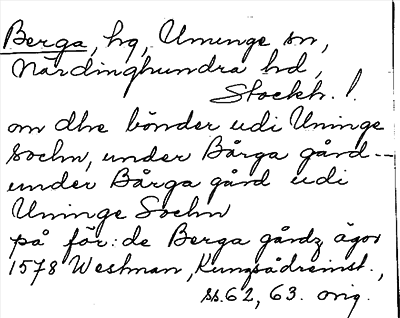 Berga, hg, Uninge sn,
Närdinghundra hd,
Stockh. l.
om dhe bönder udi Uninge
Sochn, under Bårga gård --
under Bårga gård udi
Uninge Sochn
på för: de Berga gårdz ägor
1578 Westman, Kungsådreinst.,
ss. 62, 63. orig.